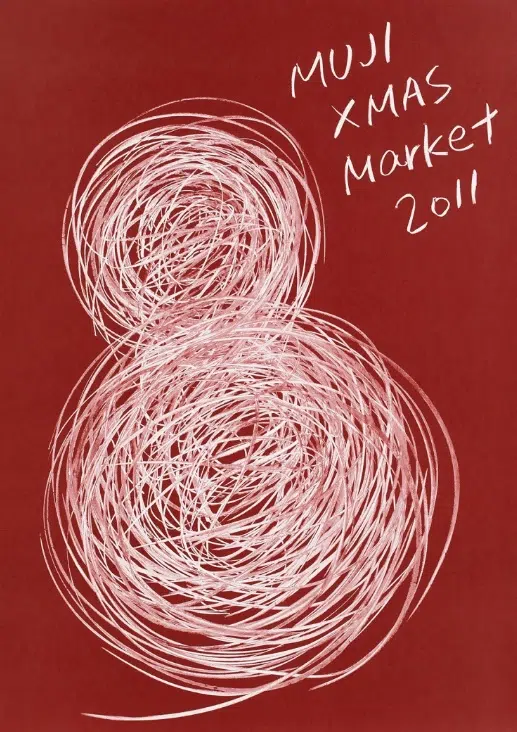 MUJI
XMAS
Market
2011